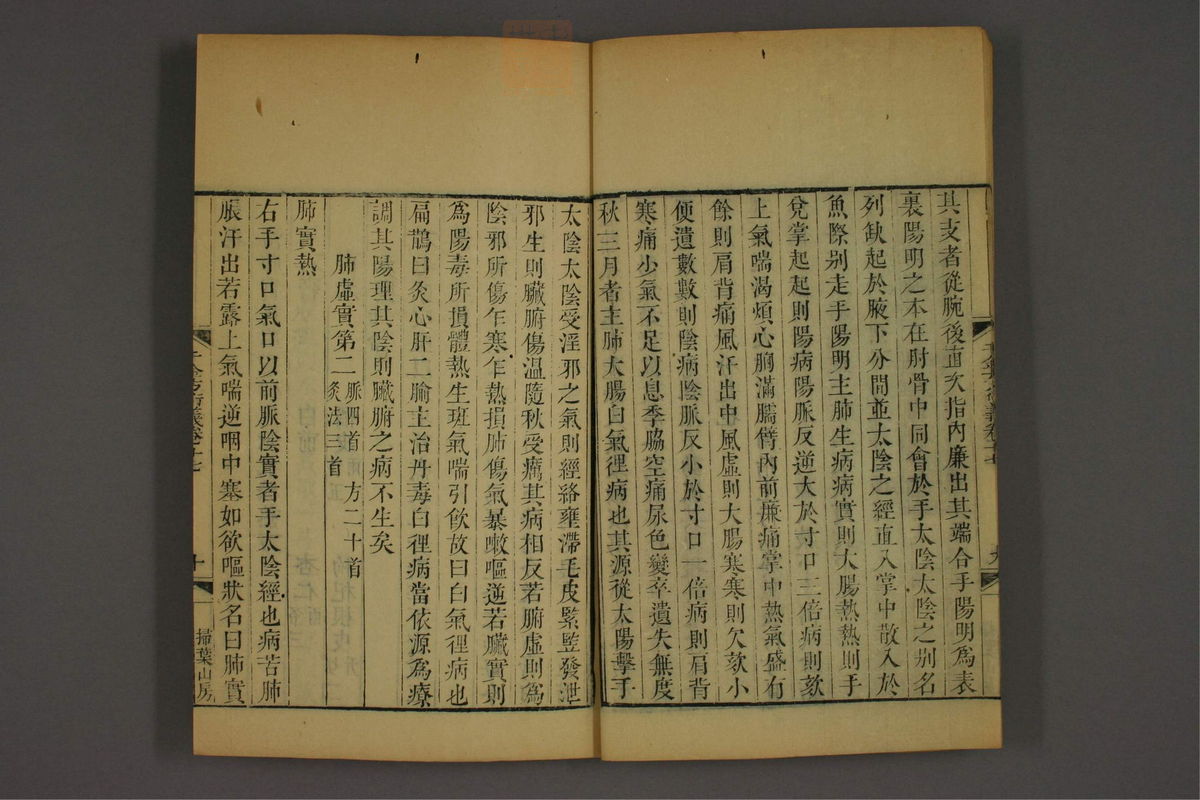 其支者從腕後直次指內廉出其端合手陽明爲表
裏陽明之本在肘骨中同會於手太陰太陰之别名
列缺起於腋下分間並太陰之經直入掌中散入於
魚際别走手陽明主肺生病病實則大腸熱熱則手
兌掌起起則陽病陽脈反逆大於寸口三倍病則欬
上氣喘渴煩心胸滿臑臂內前廉痛掌中熱氣盛有
餘則肩背痛風汗出中風虛則大腸寒寒則欠欬小
便遺數數則陰病陰脈反小於寸口一倍病則肩背
寒痛少氣不足以息季脇空痛尿色變卒遺失無度
秋三月者主肺大腸白氣狸病也其源從太陽擊手
太陰太陰受淫邪之氣則經絡壅滯毛皮緊豎發泄
邪生則臟腑傷溫隨秋受癘其病相反若腑虛則爲
陰邪所傷乍寒乍熱損肺傷氣暴嗽嘔逆若臟實則
爲陽毒所損體熱生斑氣喘引飲故曰白氣狸病也
扁鵲曰灸心肝二腧主治丹毒白狸病當依源爲療
調其陽理其陰則臟腑之病不生矣
肺虛實第二 脈四首 方二十首
灸法三首
肺實熱
右手寸口氣口以前脈陰實者手太陰經也病苦肺
脹汗出若露上氣喘逆咽中塞如欲嘔狀名曰肺實
千金方衍義卷十七
九
千金方衍義卷十七
十
掃葉山房